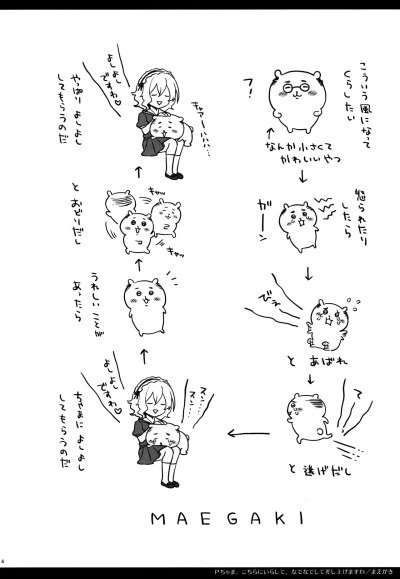 こういう風になって
くらしたい
っ!
なんか小さくて
かわいいやつ
怒られたり
したら
ガーン
びえ
と あばれ
と 逃げだし
よしよし
ですわ♡
スン……
スン……
ちゃまに よしよし
してもらうのだ
うれしい ことが
あったら
キャッ
キャッ
と おどりだし
よしよし
ですわ♡
キャアーハハハ…
やっぱり よしよし
してもらうのだ
MAEGAKI
4
Pちゃま、こちらにいらして、なでなでして差し上げますわ/まえがき